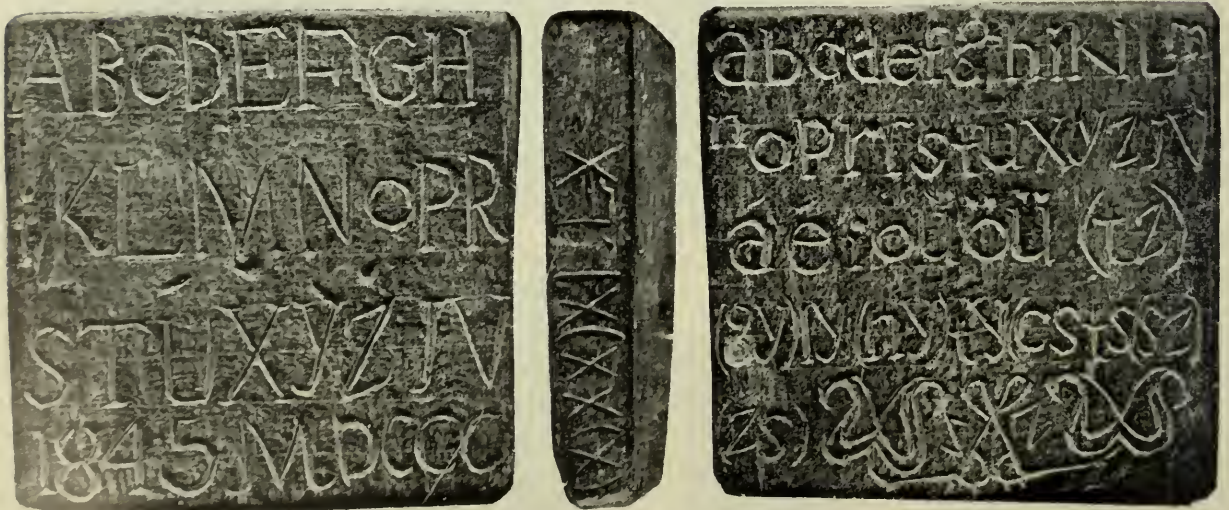 ABCDEFGH
IKLMNOPR
STUXYZJV
1845 MDCCC
XXXXIIX
abcdefghiKLm
noprrstuxyzJV
áéíóúöü (TZ)
(gy)ly(ny)ty(cs
zs)